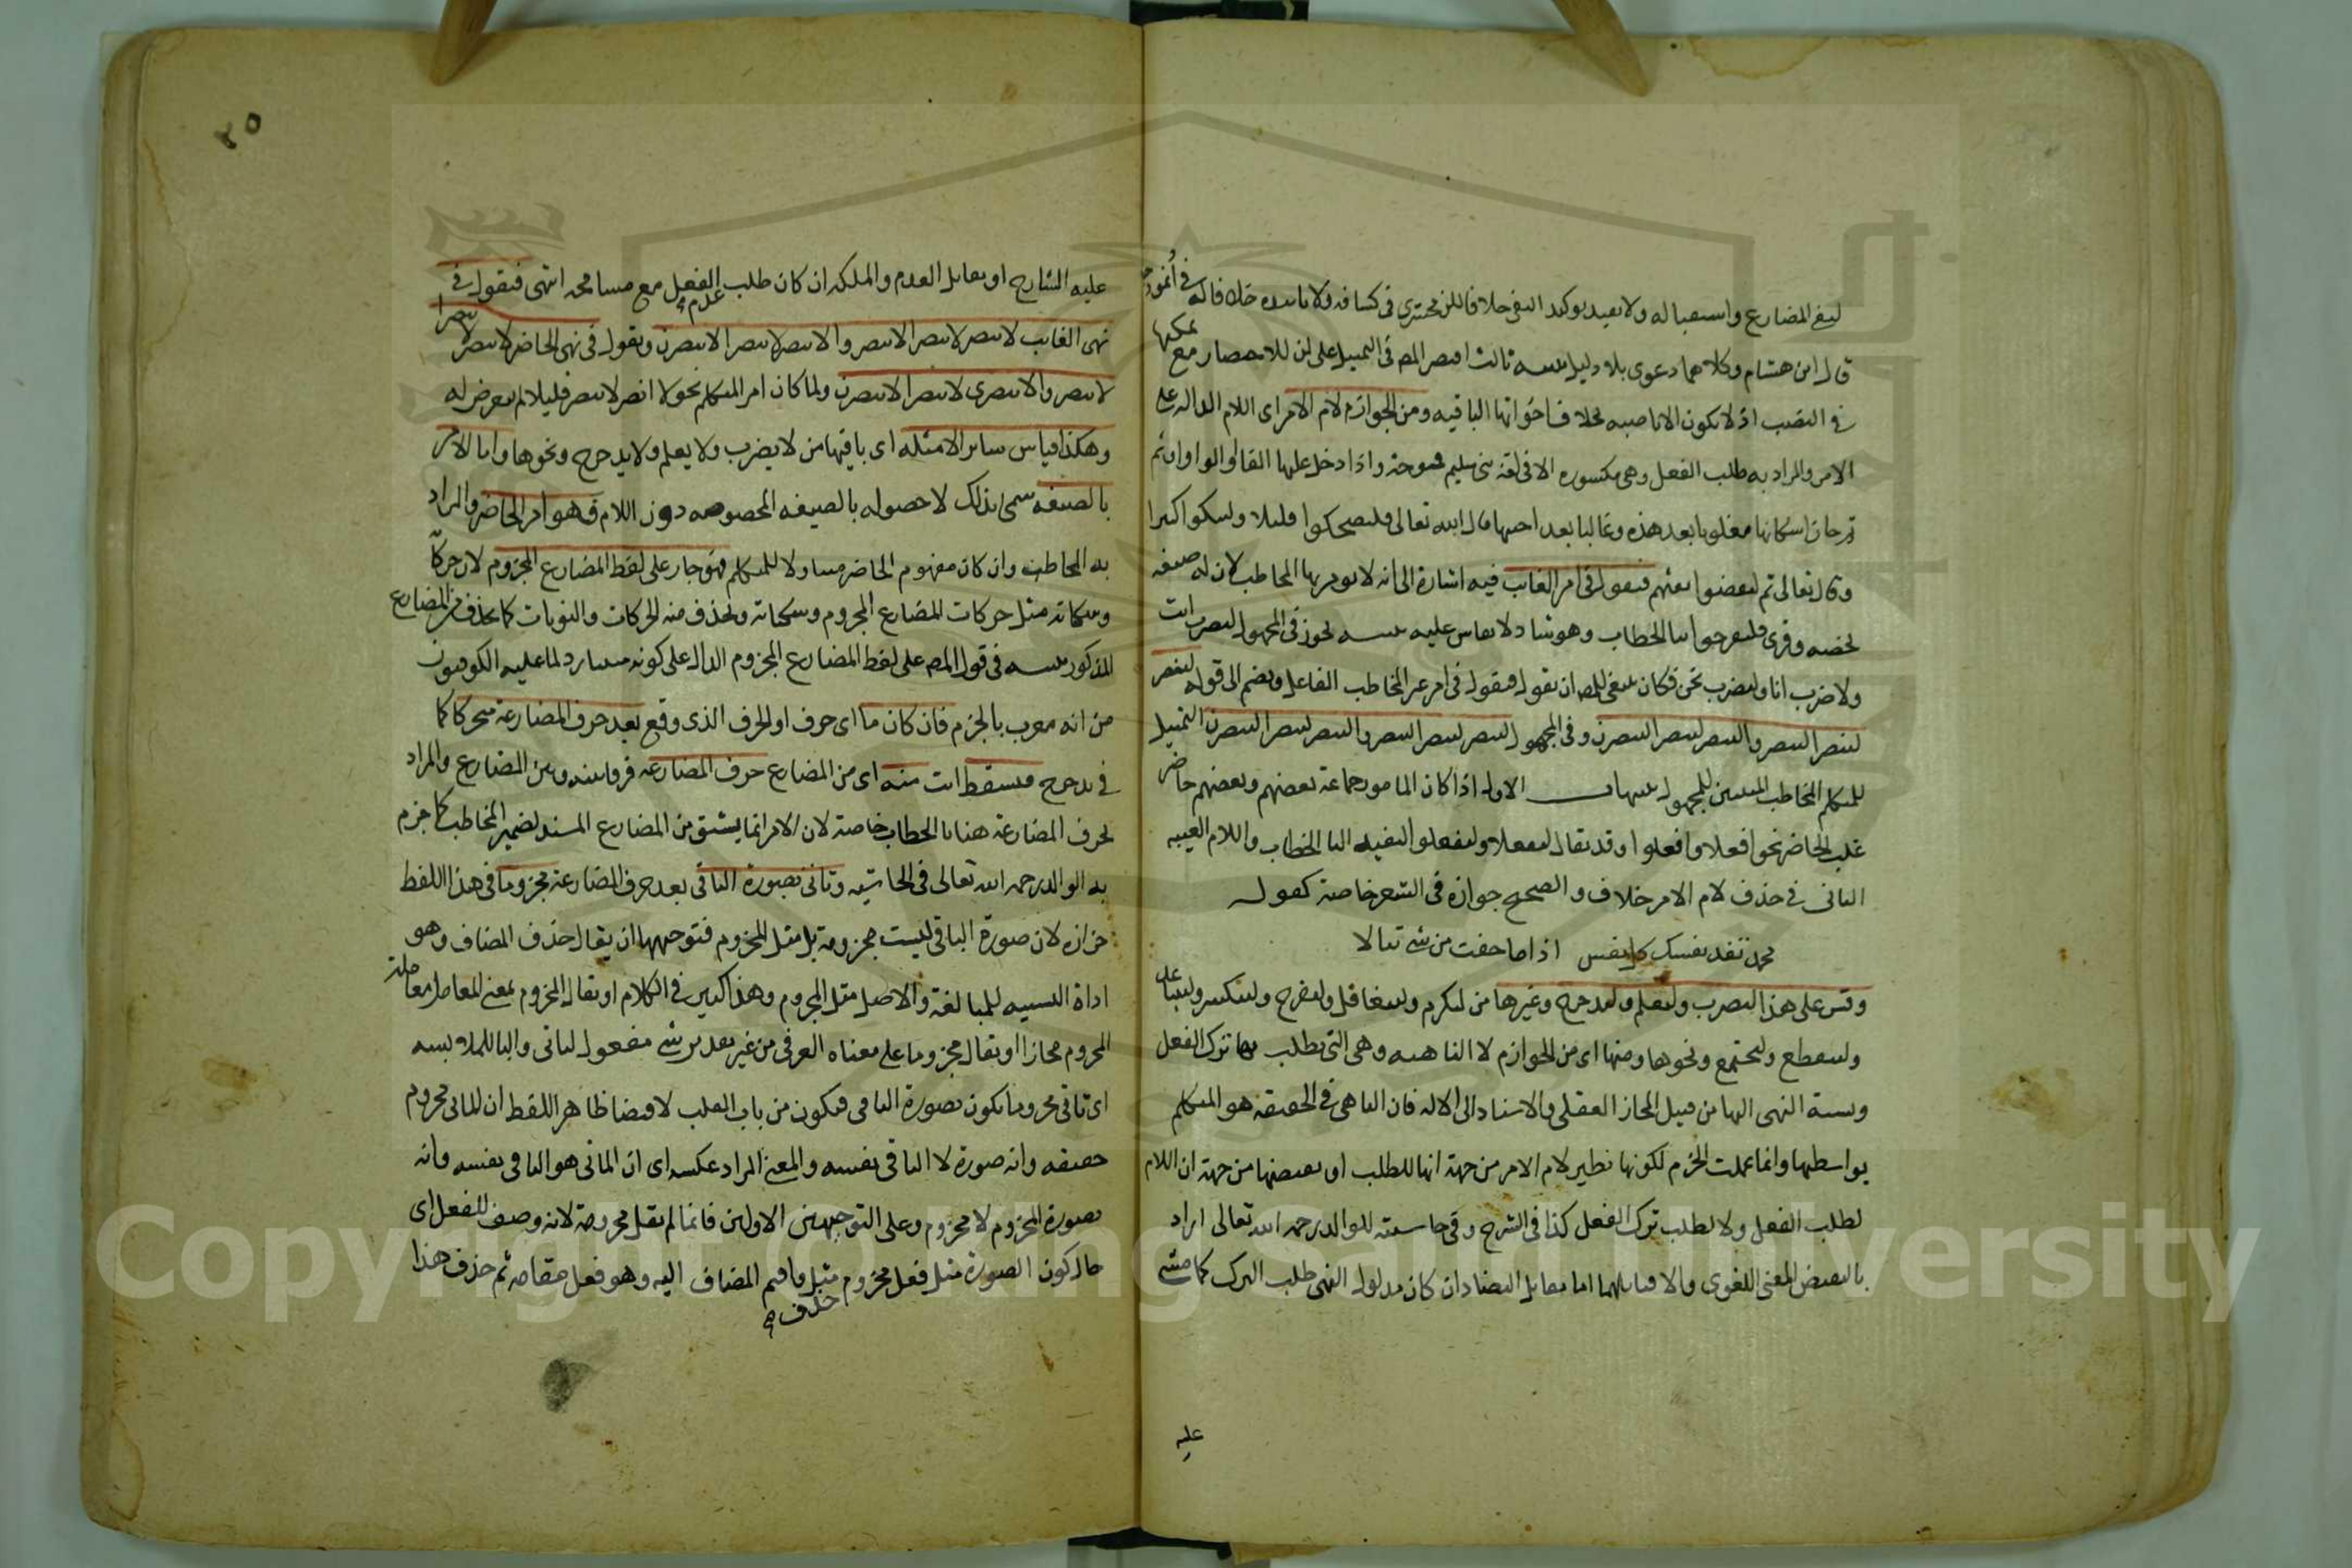 لنفي المضارع واستقباله ولا يفيد توكيد النفي خلافا للزمخشري في كشافه ولا تابيده خلافا له في أنموذجه
قال ابن هشام وكلاهما دعوى بلا دليل تنبيه ثالث اقتصر المص في التمثيل على لن للاختصار مع تمكنها
في النصب اذ لا تكون الا ناصبة بخلاف اخواتها الباقية ومن الجوازم لام الامر اى اللام الدالة على
الامر والمراد به طلب الفعل وهي مكسورة الا في لغة بني سليم فمفتوحة واذا دخل عليها الفا او الواو او ثم
جاز اسكانها مغلوبا بعد هذه وغالبا بعد اختيها قال الله تعالى فليضحكوا قليلا وليبكوا كثيرا
وقال تعالى ثم ليقضوا تفثهم فتقول في امر الغائب فيه اشارة الى انه لا يومر بها المخاطب لان له صيغة
تخصه وقرئ فلتفرحوا بتا الخطاب وهو شاذ لا يقاس عليه تنبيه يجوز في المجهول لتضرب انت
ولاضرب انا ولنضرب نحن فكان ينبغي للمص ان يقول فتقول في امر غير المخاطب الفاعل ويضم الى قوله لينصر
لينصرا لينصروا لتنصر لتنصرا لينصرن وفي المجهول لينصر لينصرا لينصروا لتنصر لتنصرا لينصرن التمثيل
للمتكلم المخاطب المبنيين للمجهول تنبيهات الاول اذا كان المامور جماعة بعضهم وبعضهم حاضر
غلب الحاضر نحو افعلا وافعلوا وقد يقال لتفعلا ولتفعلوا لتفيد التا الخطاب واللام الغيبة
الثاني في حذف لام الامر خلاف والصحيح جوازه في الشعر خاصة كقوله
محمد تفد نفسك كل نفس اذا ما خفت من شئ تبالا
وقس على هذا ليضرب وليعلم وليدحرج وغيرها من ليكرم وليتغافل وليفرح ولينكسر وليتباعد
ولينقطع وليجتمع ونحوها ومنها اى من الجوازم لا الناهية وهي التي يطلب بها ترك الفعل
ونسبة النهي اليها من قبيل المجاز العقلي والاسناد الى الالة فان الناهي في الحقيقة هو المتكلم
بواسطتها وانما عملت الجزم لكونها نظير لام الامر من جهة انها للطلب او نقيضتها من جهة ان اللام
لطلب الفعل ولا لطلب ترك الفعل كذا في الشرح وفي حاشيته للوالد رحمه الله تعالى اراد
بالنقيض المعنى اللغوى والا فتقابلهما اما تقابل التضاد ان كان مدلول النهي طلب الترك كما مشى
عليه
٢٥
عليه الشارح او تقابل العدم والملكة ان كان طلب عدم الفعل مع مسامحة انتهى فتقول في
نهى الغائب لا ينصر لا ينصرا لا ينصروا لا تنصر لا تنصرا لا ينصرن وتقول في نهى الحاضر لا تنصر لا تنصرا
لا تنصروا لا تنصرى لا تنصرا لا تنصرن ولما كان امر المتكلم نحو لا انصر لا ننصر قليلا لم يتعرض له
وهكذا قياس سائر الامثلة اى باقيها من لا يضرب ولا يعلم ولا يدحرج ونحوها واما الامر
بالصيغة سمى بذلك لاحصوله بالصيغة المخصوصة دون اللام فهو امر الحاضر والمراد
به المخاطب وان كان مفهوم الحاضر متناولا للمتكلم فهو جار على لفظ المضارع المجزوم لان حركاته
وسكناته مثل حركات المضارع المجزوم وسكناته وتحذف منه الحركات والنونات كما تحذف من المضارع
المذكور تنبيه في قول المص على لفظ المضارع المجزوم الدال على كونه مبنيا رد لما عليه الكوفيون
من انه معرب بالجزم فان كان ما اى حرف او الحرف الذى وقع بعد حرف المضارعة متحركا كما
في يدحرج فتسقط انت منه اى من المضارع حرف المضارعة فرقا بينه وبين المضارع والمراد
بحرف المضارعة هنا تا الخطاب خاصة لان الامر انما يشتق من المضارع المسند لضمير المخاطب كما جزم
به الوالد رحمه الله تعالى في الحاشية وتاتى بصورة الباقي بعد حرف المضارعة مجزوما في هذا اللفظ
حزازة لان صورة الباقي ليست مجزومة بل مثل المجزوم فتوجيهها ان يقال حذف المضاف وهو
اداة التشبيه للمبالغة والاصل مثل المجزوم وهذا كثير في الكلام او يقال المجزوم بمعنى المعامل معاملة
المجزوم مجازا او يقال مجزوما على معناه العرفي من غير تقدير شئ مفعول لتاتى والبا للملابسة
اى تاتى مجزوما يكون بصورة الباقي فيكون من باب القلب لاقتضا ظاهر اللفظ ان الماتى مجزوم
حقيقة وانه صورة لا الباقي بنفسه والمعنى المراد عكسه اى ان الماتى هو الباقي بنفسه وانه
بصورة المجزوم لا مجزوم وعلى التوجيهين الاولين فانما لم يقل مجزومة لانه وصف للفعل اى
حال كون الصورة مثل فعل مجزوم حذف مثل واقيم المضاف اليه وهو فعل مقامه ثم حذف هذا
Copyright © King Saud University